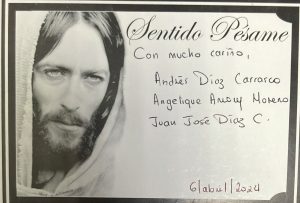 Sentido Pésame
Con mucho cariño,
Andrés Díaz Carrasco
Angelique Moreno
Juan José Díaz C.
6/abril/2024